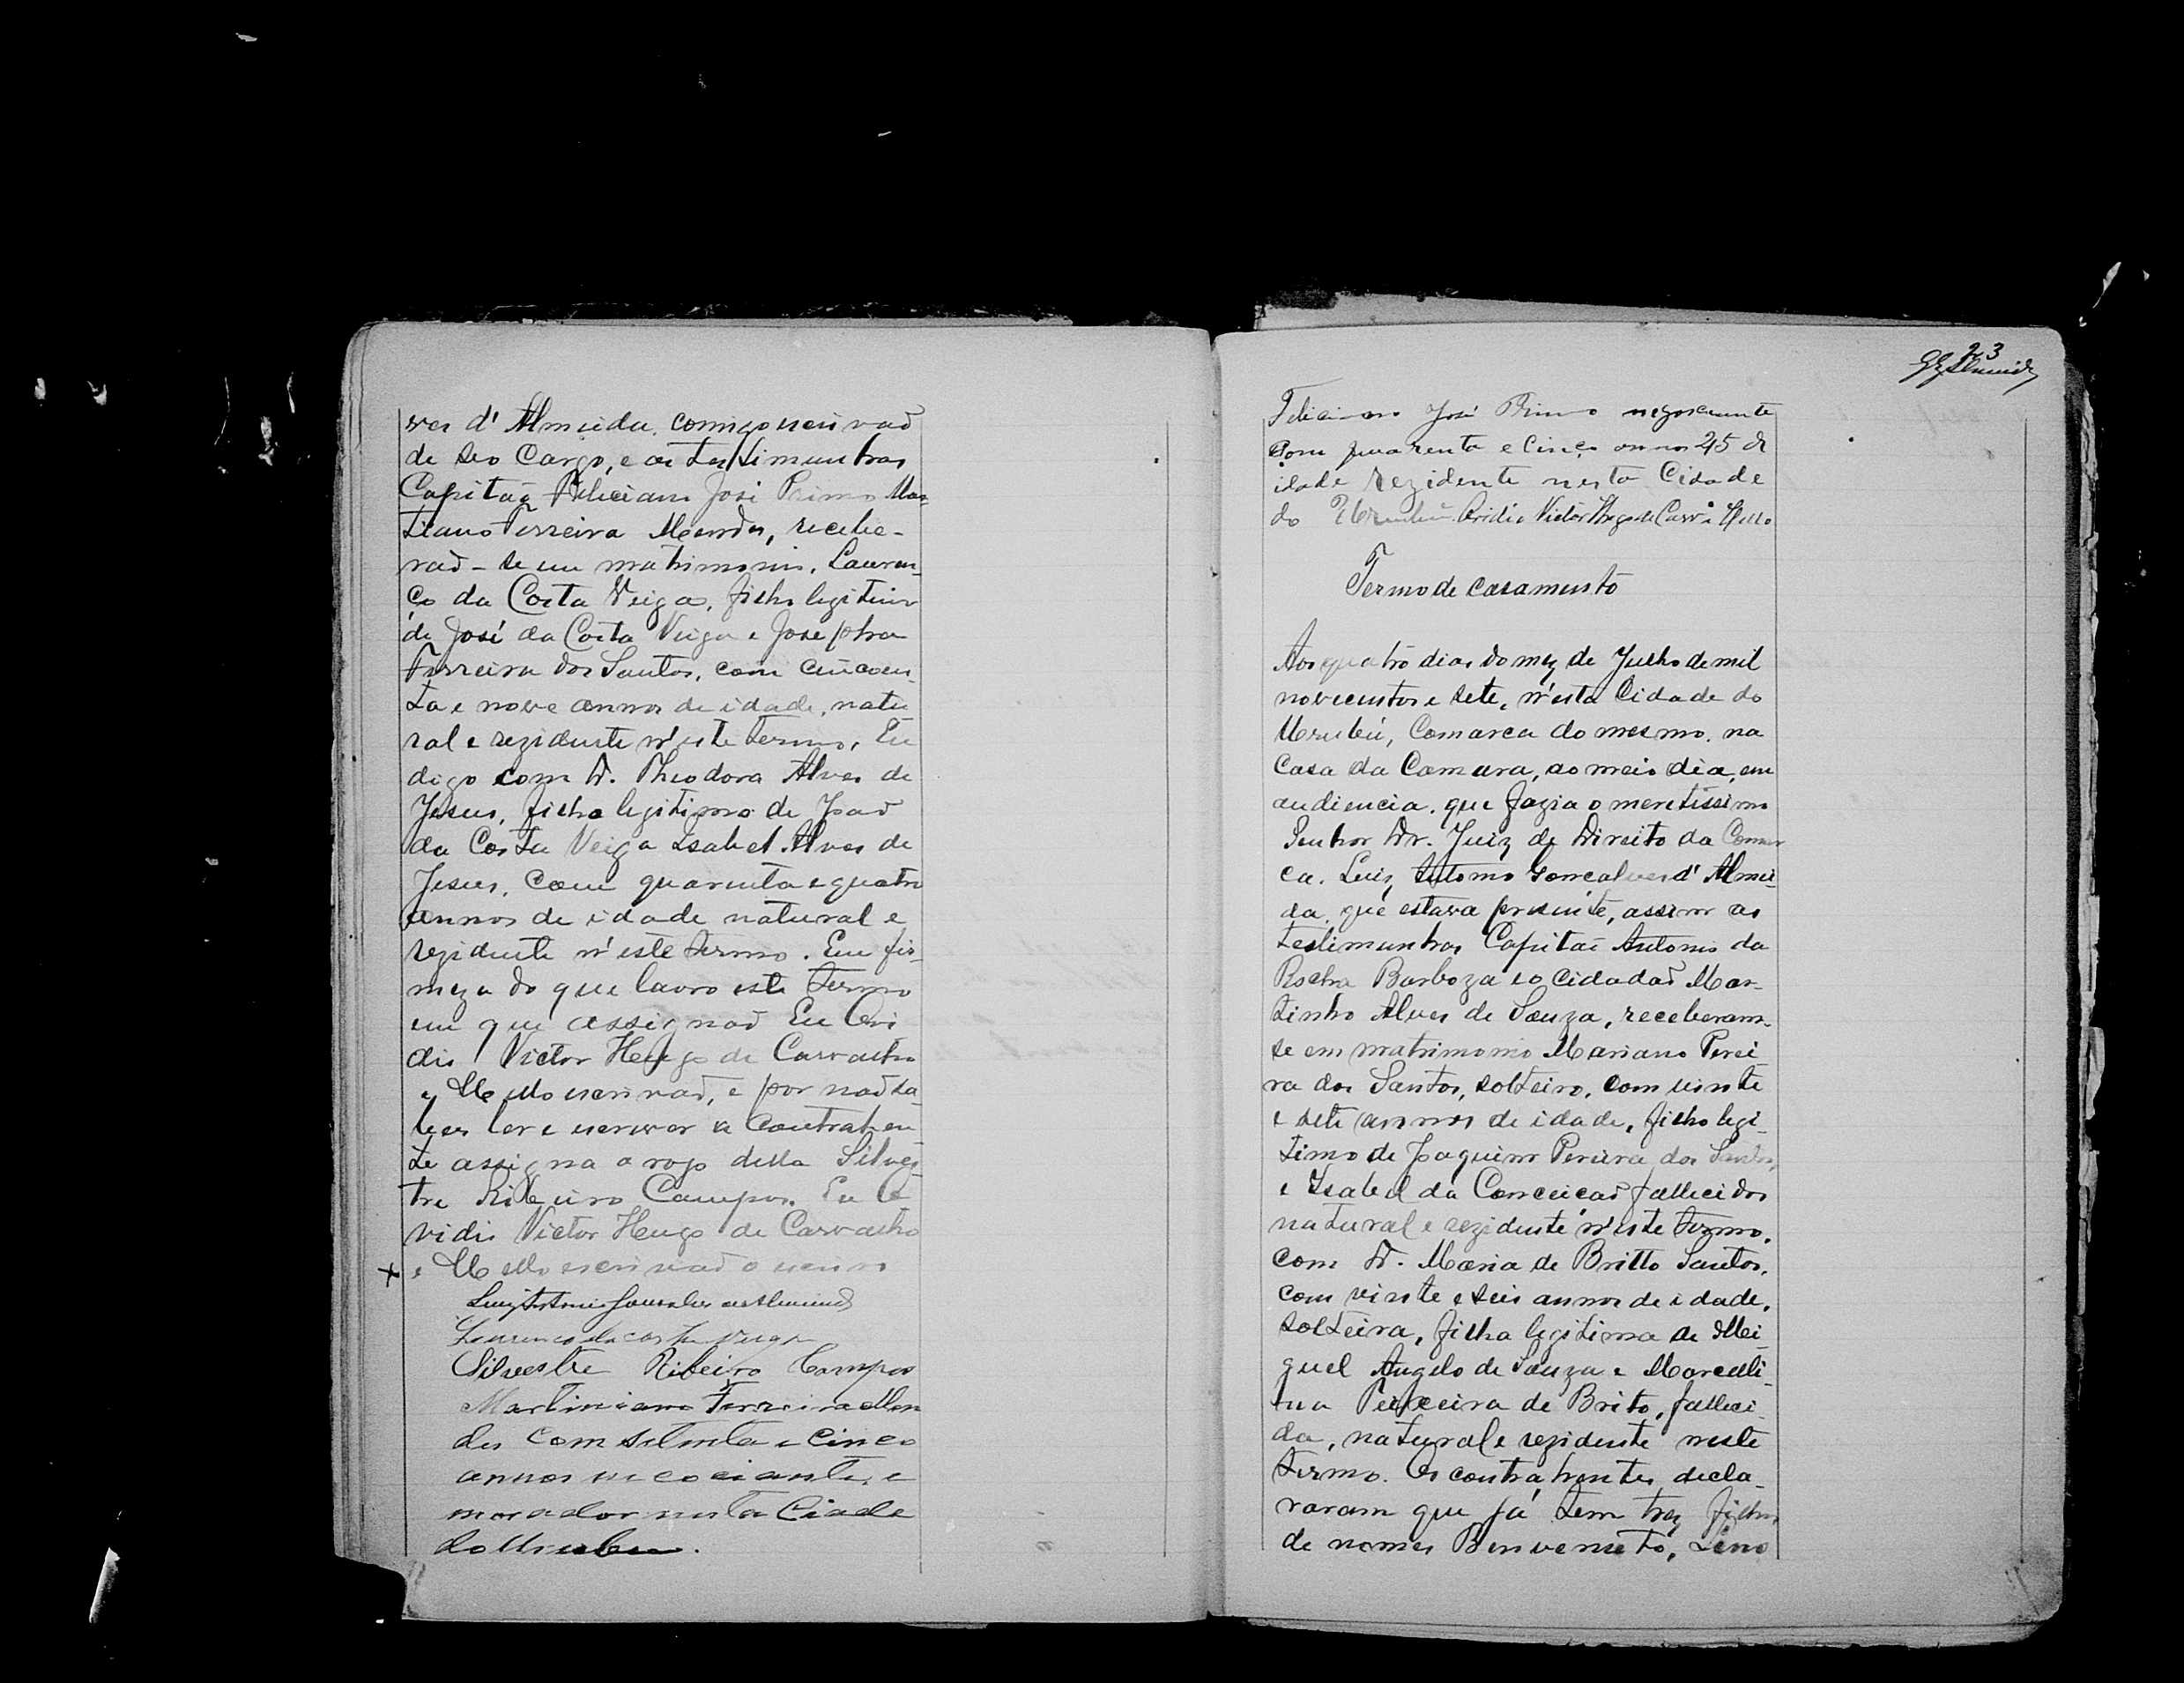 ves d' Almeida. comigo escrivaõ
de seo Cargo, e as testimunhas
Capitaõ Feliciano José Primo Mar-
tiano Ferreira Mendes, recebe-
raõ-se em matrimonio, Lauren-
ço da Costa Veiga, filho legitimo
de José da Costa Veiga e Josepha
Ferreira dos Santos, com cincoen-
ta e nove annos de idade, natu
ral e rezidente n'este termo, Eu
digo com D. Theodora Alves de
Jesus, filha legitima de Joaõ
da Costa Veiga Izabel Alves de
Jesus, com quarenta e quatro
annos de idade natural e
rezidente n'este termo. Em fir-
meza do que lavro este termo
em que assignaõ Eu Ovi
dio Victor Hugo de Carvalho
e Mello escrivaõ, e por naõ sa-
ber ler e escrever a Contrahen-
te assigna a rogo della Silves-
tre Ribeiro Campos. Eu O
vidio Victor Hugo de Carvalho
x e Mello escrivaõ o escrevi
Luiz Antonio Gonsalves de Almeida
Lourenço da costa veiga
Silvestre Ribeiro Campos
Martiniano Ferreira Men
des com setenta e cinco
annos necociante, e
morador nesta Ciade
do Urubu.
23
Feliciano José Primo negosciante
Com quarenta e Cinco annos 45 de
idade Rezidente nesta Cidade
do Urubú. Ovidio Victor Hugo de Carvº e Mello
Termo de casamento
Aos quatro dias do mez de Julho de mil
novecentos e sete, n'esta Cidade do
Urubú, Comarca do mesmo, na
Casa da Camara, ao meio dia, em
audiencia, que fazia o meretissimo
Senhor Dr. Juiz de Direito da Comar
ca. Luiz Antonio Gonçalves d' Almei-
da, que estava presente, assim as
testimunhas Capitaõ Antonio da
Rocha Barboza e o Cidadaõ Mar-
tinho Alves de Souza, receberam-
se em matrimonio Mariano Perei-
ra dos Santos, solteiro, com vinte
e sete annos de idade, filho legi-
timo de Joaquim Pereira dos Santos,
e Izabel da Conceiçaõ fallecidos
natural e rezidente n'este termo,
com D. Maria de Britto Santos,
com vinte e seis annos de idade,
solteira, filha legitima de Mi-
guel Angelo de Souza e Marcelli-
na Teixeira de Brito, falleci-
da, natural e rezidente neste
termo. Os contrahentes decla-
raram que já tem trez filhos
de nomes Benvenuto, Lino